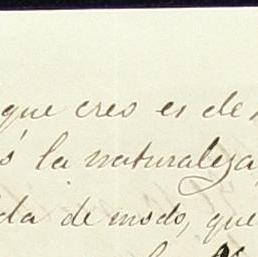 que creo es de
la naturaleza
da de modo, que